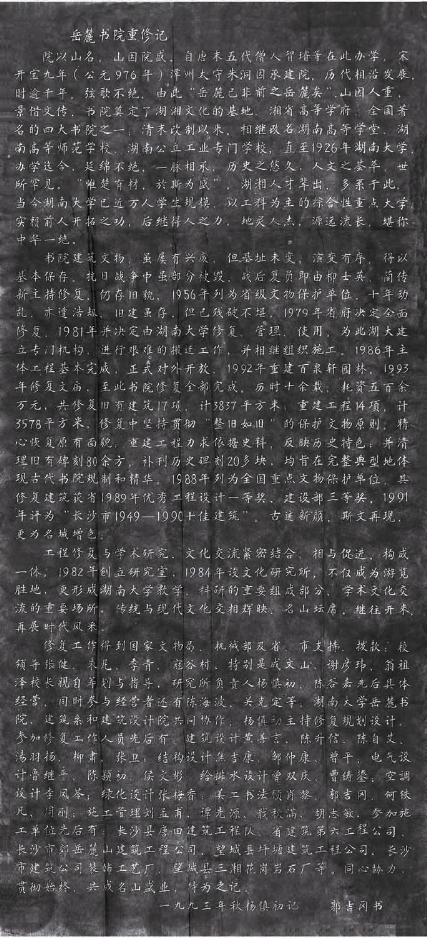 岳麓书院重修记
院以山名，山因院盛，自唐末五代僧人智璿等在此办学，宋
开宝九年（公元976年）潭州太守朱洞因承建院，历代相沿发展，
时逾千年，弦歌不绝，由此“岳麓已非前之岳麓矣”。山因人重，
景借文传，书院奠定了湖湘文化的基地，湘省高等学府，全国著
名的四大书院之一，清末改制以来，相继改名湖南高等学堂、湖
南高等师范学校、湖南公立工业专门学校，直至1926年湖南大学，
办学迄今，延绵不绝，一脉相承，历史之悠久，人文之荟萃，世
所罕见。“惟楚有材，於斯为盛”，湖湘人才辈出，多系于此，
当今湖南大学已近万人学生规模，以工科为主的综合性重点大学，
实赖前人开拓之功，后继得人之力，地灵人杰，源远流长，堪称
中华一绝。
书院建筑文物，虽屡有兴废，但基址未变，演变有序，得以
基本保存，抗日战争中虽部分被毁，战后复员即由柳士英、
新主持修复，仍存旧貌，1956年列为省级文物保护单位，十年动
乱，亦遭浩劫，旧建虽存，但已残破不堪，1979年省府决定全面
修复，1981年并决定由湖南大学修复、管理、使用，为此湖大建
立专门机构，进行艰难的搬迁工作，并相继组织施工，1986年主
体工程基本完成，正式对外开放，1992年重建百泉轩园林，1993
年修复文庙，至此书院修复全部完成，历时十余载，耗资五百余
万元，共修复旧有建筑17项，计3837平方米，重建工程14项，计
3578平方米，修复中坚持贯彻“整旧如旧”的保护文物原则，精
心恢复原有面貌，重建工程力求依据史料，反映历史特色；并清
理旧有碑刻80余方，补刊历史碑刻20多块，均旨在完整典型地体
现古代书院规制和精华，1988年列为全国重点文物保护单位，其
修复建筑获省1989年优秀工程设计一等奖、建设部三等奖，1991
年评为“长沙市1949—1990十佳建筑”，古迹新颜，斯文再现，
更为名城增色。
工程修复与学术研究、文化交流紧密结合，相与促进，构成
一体，1982年创立研究室，1984年设文化研究所，不仅成为游览
胜地，更形成湖南大学教学、科研的重要组成部分，学术文化交
流的重要场所，传统与现代文化交相辉映，名山坛席，继往开来，
再展时代风采。
修复工作得到国家文物局、机械部及省、市支持、拨款；校
领导张健、朱凡、李青、程谷村，特别是成文山、谢彦玮、翁祖
泽校长视自筹划与指导，研究所负责人杨慎初、陈谷嘉先后具体
经营，同时参与经营者还有陈海波、等；湖南大学岳麓书
院、建筑系和建筑设计院共同协作，杨慎初主持修复规划设计，
参加修复工作人员先后有：建筑设计黄善言、陈升信、陈自
汤羽扬、柳肃、张卫；结构设计、邹仲康、曾平，电气设
计、陈颖初、侯文彬，给排水设计曾双庆、曹铸；空调
设计李凤；绿化设计张梅香；美工书法颜肖黎、郭吉冈、何
凡、周丽；施工管理刘、谭光源、、胡志敏，参加施
工单位先后有：长沙县原田建筑工程队、省建筑第六工程公司、
长沙市郊岳麓山建筑工程公司、望城县坪塘建筑工程公司、长沙
市建筑公司装饰工艺厂、望城县三湘花岗岩石厂等，同心协力，
贯彻始终，共成名山盛业，特为之记。
一九九三年秋杨慎初记 郭吉冈书